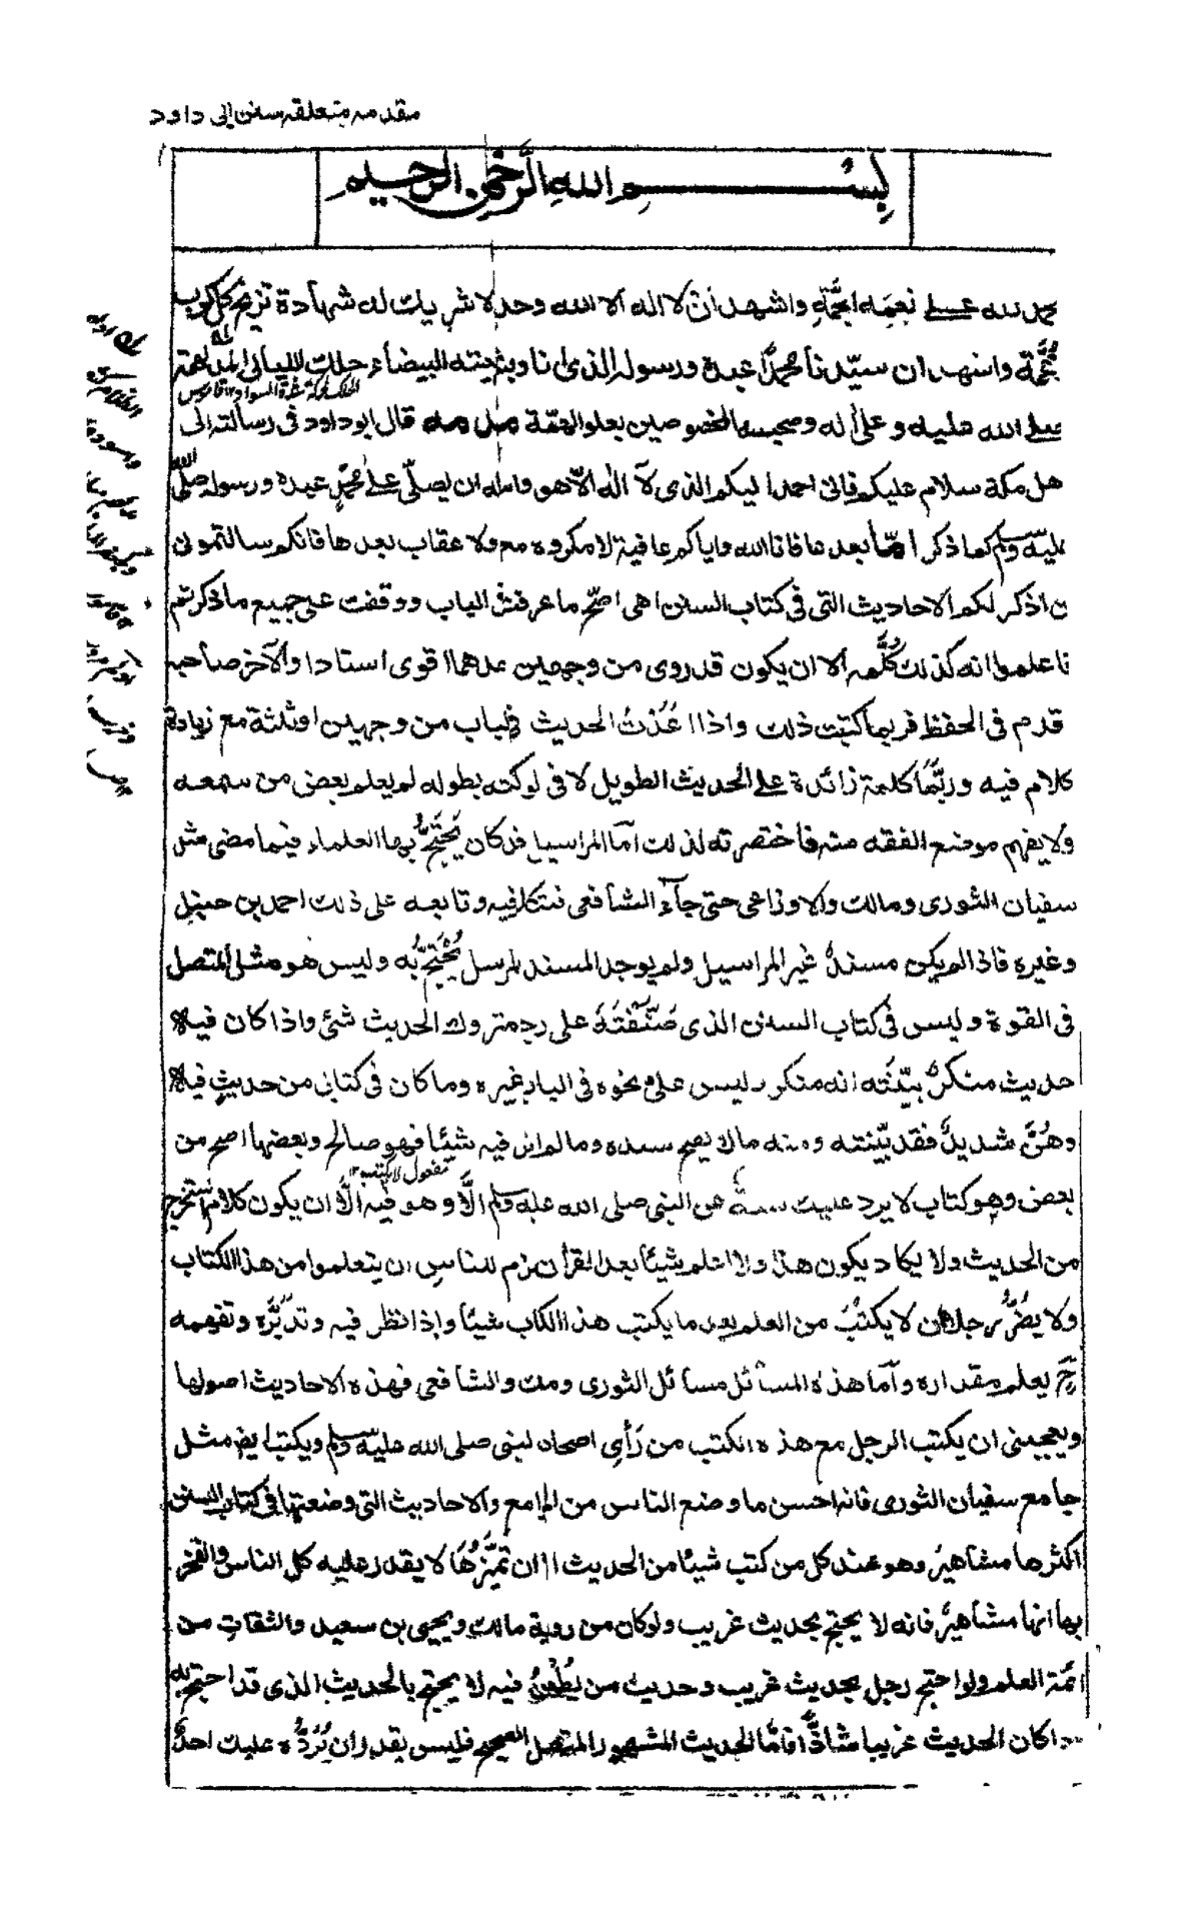 مقدمه متعلقه سنن ابی داود
بِسْمِ اللهِ الرَّحْمٰنِ الرَّحِيمِ
حمد لله على نعمه الجمّة واشهد ان لا اله الا الله وحده لا شريك له شهادة تزيح كل كرب
غُمَّة واشهد ان سيّدنا محمداً عبده ورسوله الذى اناد بشريعته البيضاء حلك الليالى المدلهمة
الحلك محركة شدة السواد ١٢ قاموس
صلى الله عليه وعلى آله وصحبه المخصوصين بعلو الهمّة قال ابو داود فى رسالته الى
هل مكة سلام عليكم فانى احمد اليكم الذى لآ اله الّا هو واسأله ان يصلّى على محمّدٍ عبده ورسوله صلّى الله
عليه وسلم كما ذكر امّا بعد عافانا الله واياكم عافية لا مكروه مع ولا عقاب بعدها فانكم سالتمونى
ن اذكر لكم الاحاديث التى فى كتاب السنن اهى اصح ما عرفت فى الباب ووقفت على جميع ما ذكرتم
فاعلموا انه كذلك كُلُّه الا ان يكون قد روى من وجهين احدهما اقوى اسنادا والآخر صاحبه
قدم فى الحفظ فربما كتبت ذلك واذا اعُدْتُ الحديث فى الباب من وجهين او ثلثة مع زيادة
كلام فيه وربَّما كلمة زائدة على الحديث الطويل لانى لو كتبته بطوله لم يعلم بعض من سمعه
ولا يفهم موضع الفقه منه فاختصرته لذلك امّا المراسيل فقد كان يَحْتَجُّ بها العلماء فيما مضى مثل
سفيان الثورى ومالك والاوزاعى حتى جآء الشافعى فتكلم فيه وتابعه على ذلك احمد بن حنبل
وغيره فاذا لم يكن مسندٌ غير المراسيل ولم يوجد المسند فالمرسل يُحْتَجُّ به وليس هو مثل المتصل
فى القوة وليس فى كتاب السنن الذى صَنَّفْتُهُ على رجل متروك الحديث شئ واذا كان فيه
حديث منكرٌ بيّنتُه انه منكر وليس على نحوه فى الباب غيره وما كان فى كتابى من حديثٍ فيه
وهْنٌ شديدٌ فقد بيّنته ومنه مالا يصح سنده وما لم اذكر فيه شيئا فهو صالح وبعضها اصح من
مفعول لا يكتب ١٢
بعض وهو كتاب لا يرد عليك سنةٌ عن النبى صلى الله عليه وسلم الّا وهو فيه الّا ان يكون كلام استخرج
من الحديث ولا يكاد يكون هذا ولا اعلم شيئا بعد القرآن الزم للناس ان يتعلموا من هذا الكتاب
ولا يضُرُّ رجلا ان لا يكتُبَ من العلم بعد ما يكتب هذا الكتاب شيئا واذا نظر فيه وتدبَّره وتفهمه
ح يعلم مقداره وامّا هذه المسائل مسائل الثورى ومالك والشافعى فهذه الاحاديث اصولها
ويعجبنى ان يكتب الرجل مع هذه الكتب من رَأىِ اصحاب النبى صلى الله عليه وسلم ويكتب ايضا مثل
جامع سفيان الثورى فانه احسن ما وضع الناس من الجامع والاحاديث التى وضعتها فى كتاب السنن
اكثرها مشاهيرُ وهو عند كل من كتب شيئا من الحديث الا ان تميُّزُهَا لا يقدر عليه كل الناس والفخر
بها انها مشاهيرُ فانه لا يحتج بحديث غريب ولو كان من رواية مالك ويحيى بن سعيد والثقات من
ائمة العلم ولو احتج رجل بحديث غريب وحديث من يُطْعَنُ فيه لا يحتج بالحديث الذى قد احتج به
اذا كان الحديث غريبا شاذًّا فامّا الحديث المشهور المتصل الصحيح فليس يقدر ان يَرُدَّه عليك احدٌ